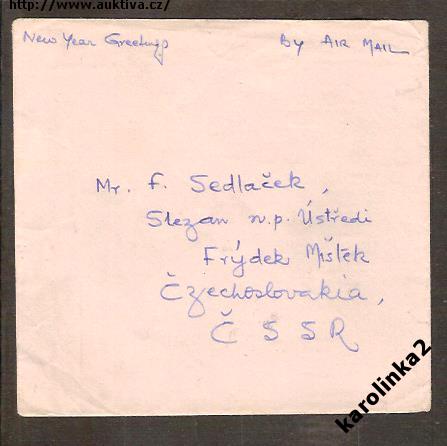 http://www.auktiva.cz/
New Year Greetings
By AIR MAIL
Mr. F. Sedlaček,
Slezan n.p. Ústředi
Frýdek Místek
Čzechoslovakia,
Č S S R
karolinka2